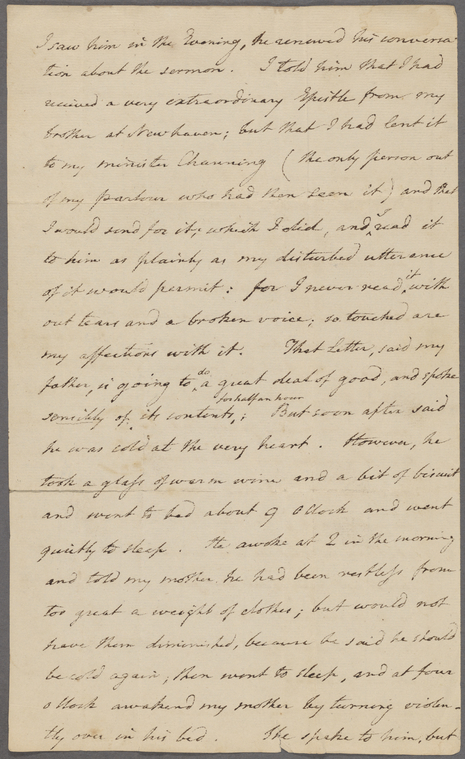 I saw him in the Evening, he renewed his conversa-
tion about the sermon. I told him that I had
received a very extraordinary Epistle from my
brother at Newhaven; but that I had lent it
to my minister Channing (the only person out
of my parlour who had then seen it) and that
I would send for it; which I did, and I read it
to him as plainly as my disturbed utterance
of it would permit: for I never read it with
out tears and a broken voice; so touched are
my affections with it. That Letter, said my
father, is going to do a great deal of good, and spoke
sensibly of its contents, for half an hour; But soon after said
he was cold at the very heart. However, he
took a glass of warm wine and a bit of biscuit
and went to bed about 9 oClock and went
quietly to sleep. He awoke at 2 in the morning
and told my mother he had been restless from
too great a weight of clothes; but would not
have them diminished, because he said he should
be cold again; then went to sleep, and at four
oClock awakend my mother by turning violen-
tly over in his bed. She spoke to him, but